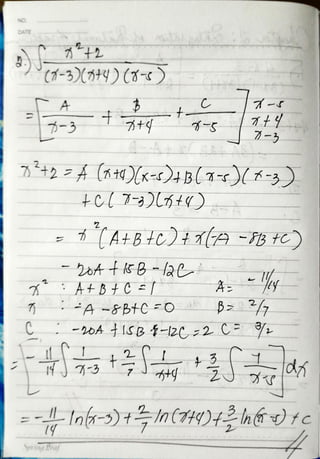 NO.
DATE
2.) ∫ x²+2 / (x-3)(x+4)(x-5)
= [ A/x-3 + B/x+4 + C/x-5 ] x-5 x+4 x-3
x²+2 = A (x+4)(x-5)+B(x-5)(x-3)
+C(x-3)(x+4)
= x²(A+B+C)+x(-A -8B+C)
- 20A+15B-12C
x² : A+B+C=1 A= -11/14
x : -A-8B+C=0 B= 2/7
C : -20A+15B-12C=2 C= 3/2
= [ -11/14 ∫ 1/x-3 + 2/7 ∫ 1/x+4 + 3/2 ∫ 1/x-5 ] dx
= -11/14 ln(x-3)+2/7 ln(x+4)+3/2 ln(x-5)+c